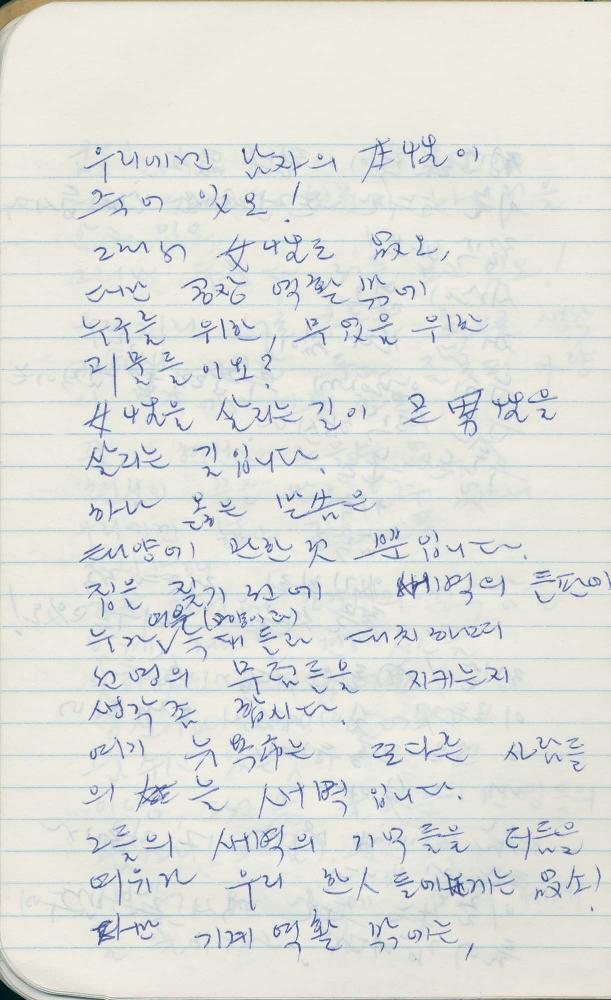 우리에겐 남자의 女性이
죽어 있오!
그래서 女性도 없오,
다만 공장 역활 밖에
누구를 위한, 무엇을 위한
괴물들이오?
女性을 살리는 길이 곧 男性을
살리는 길입니다.
하나 옳은 말씀은
태양에 관한 것 뿐입니다.
짐을 짖기 전에 새벽의 들판에
누가 여우(고양이과) 늑대들과 대치하며
선명의 무덤들을 지키는지
생각좀 합시다.
여기 뉴욕市는 또다른 사람들
의 늘 새벽입니다.
그들의 새벽의 기억들을 더듬을
여유가 우리 한人들에게는 없소!
다만 기계 역활 밖에는,